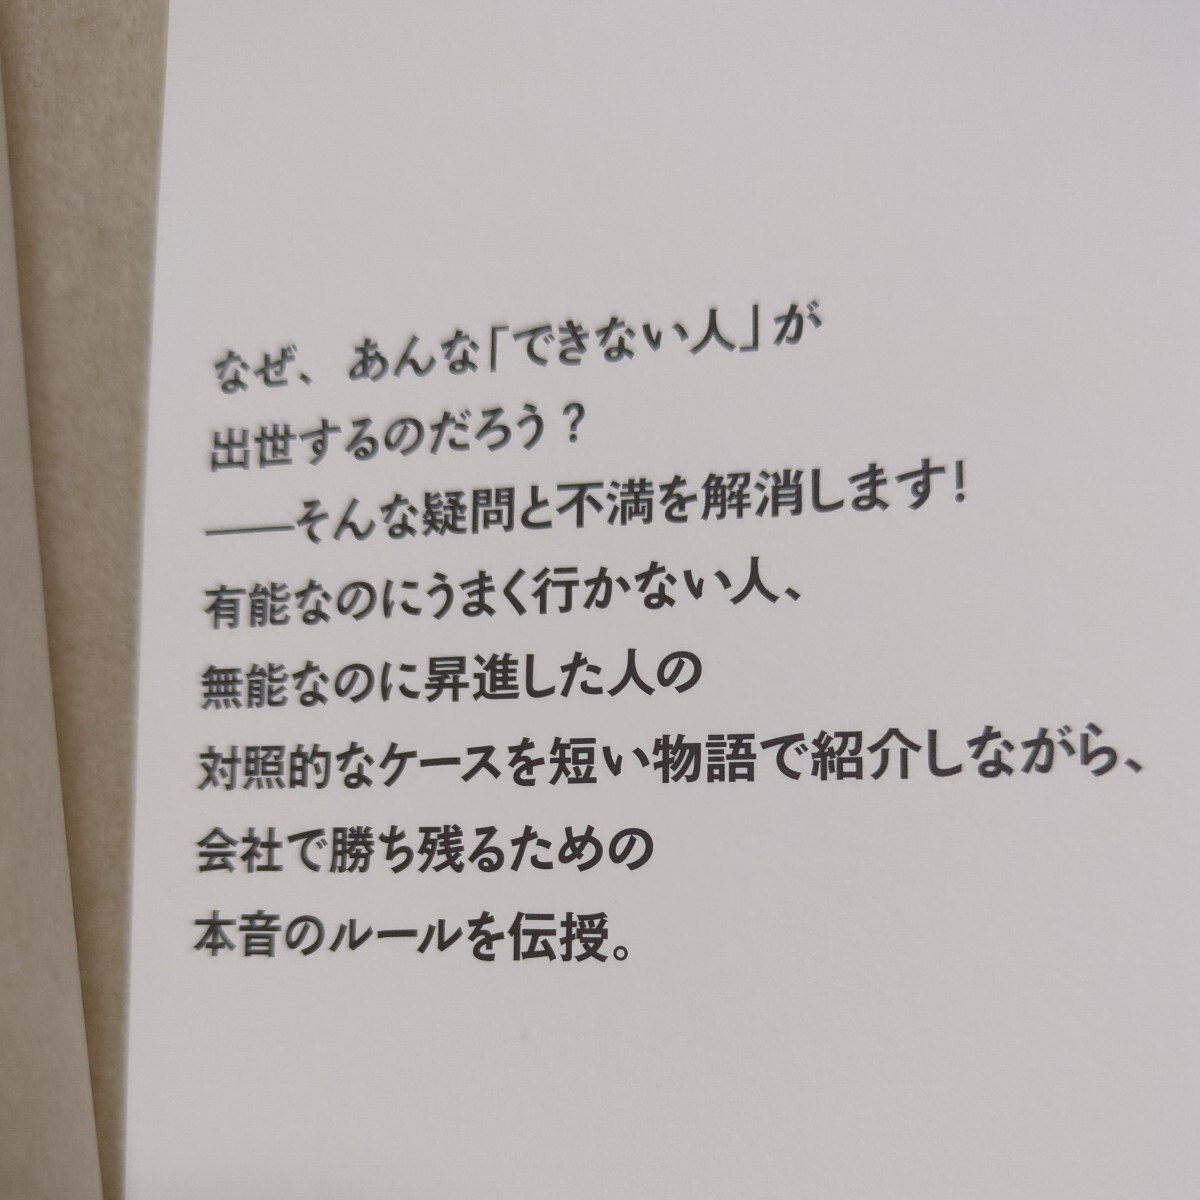 なぜ、あんな「できない人」が
出世するのだろう？
――そんな疑問と不満を解消します!
有能なのにうまく行かない人、
無能なのに昇進した人の
対照的なケースを短い物語で紹介しながら、
会社で勝ち残るための
本音のルールを伝授。